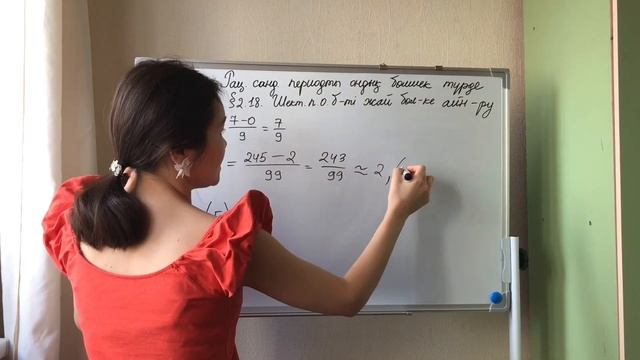 Рац санд периодты ондық бөлшек түрде
§2.18. Шект. п. О. б-ті жай бөл-ке айн-ру
7-0/9 = 7/9
= 245-2/99 = 243/99 ≈ 2,(